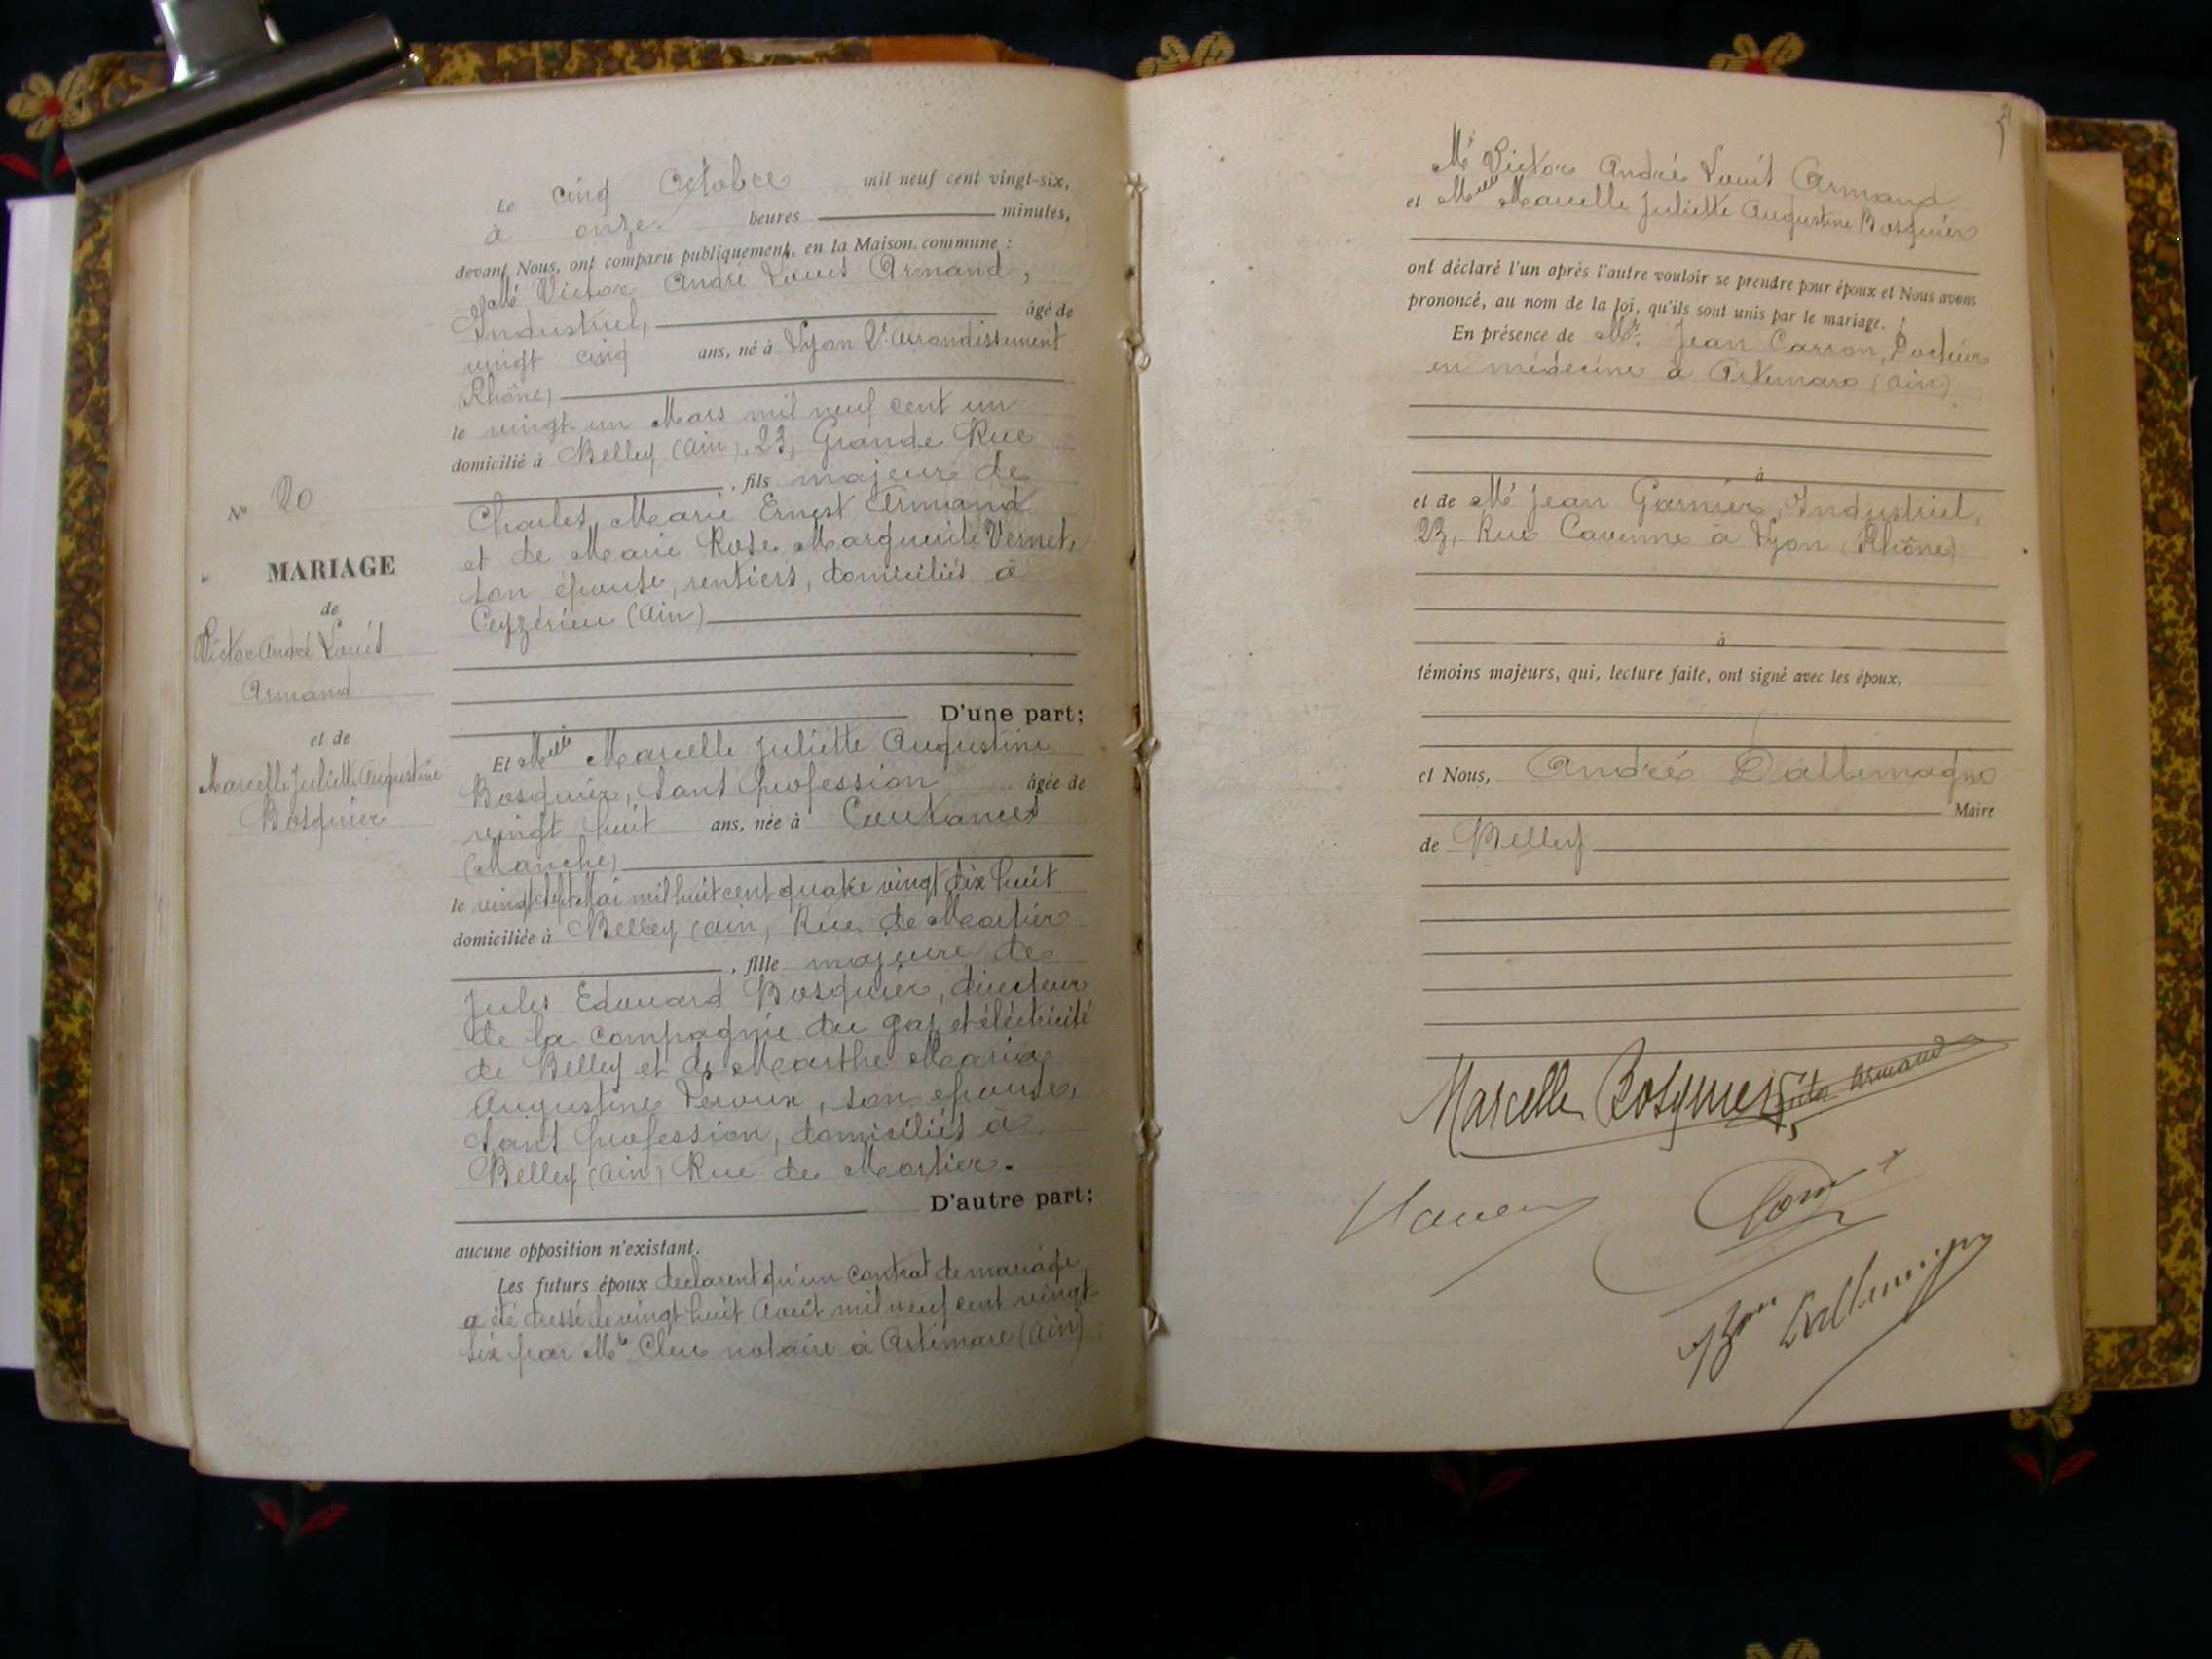 Le cinq Octobre mil neuf cent vingt-six,
à onze heures minutes,
devant Nous, ont comparu publiquement, en la Maison commune :
Mr Victor André Louis Armand,
Industriel, âgé de
vingt cinq ans, né à Lyon 2e arrondissement
(Rhône)
le vingt-un Mars mil neuf cent un
domicilié à Belley (Ain), 23, Grande Rue
, fils majeur de
Charles Marie Ernest Armand
et de Marie Rose Marguerite Vernet,
son épouse, rentiers, domiciliés à
Ceyzérieu (Ain)
D'une part;
Et Melle Marcelle Juliette Augustine
Bosquier, sans profession âgée de
vingt huit ans, née à Coutances
(Manche)
le vingt sept Mai mil huit cent quatre vingt dix huit
domiciliée à Belley (Ain, Rue de
, fille majeure de
Jules Edouard Bosquier, directeur
de la compagnie du gaz et éléctricité
de Belley et de Marthe Maria
Augustine Leroux, son épouse,
sans profession, domiciliés à
Belley (Ain) Rue de
D'autre part;
aucune opposition n'existant.
Les futurs époux déclarent qu'un contrat de mariage
a été dressé le vingt huit Août mil neuf cent vingt
six par Me notaire à Artemare (Ain)
No 20
MARIAGE
de
Victor André Louis
Armand
et de
Marcelle Juliette Augustine
Bosquier
Mr Victor André Louis Armand
et Melle Marcelle Juliette Augustine Bosquier
ont déclaré l'un après l'autre vouloir se prendre pour époux et Nous avons
prononcé, au nom de la loi, qu'ils sont unis par le mariage.
En présence de Mr. Jean Carron, Docteur
en médecine à Artemare (Ain)
à
et de Mr Jean Garnier, Industriel,
23, Rue Cavenne à Lyon (Rhône)
à
témoins majeurs, qui, lecture faite, ont signé avec les époux,
et Nous, André Dallemagne
Maire
de Belley
Marcelle Bosquier
Armand
Bon Dallemagne